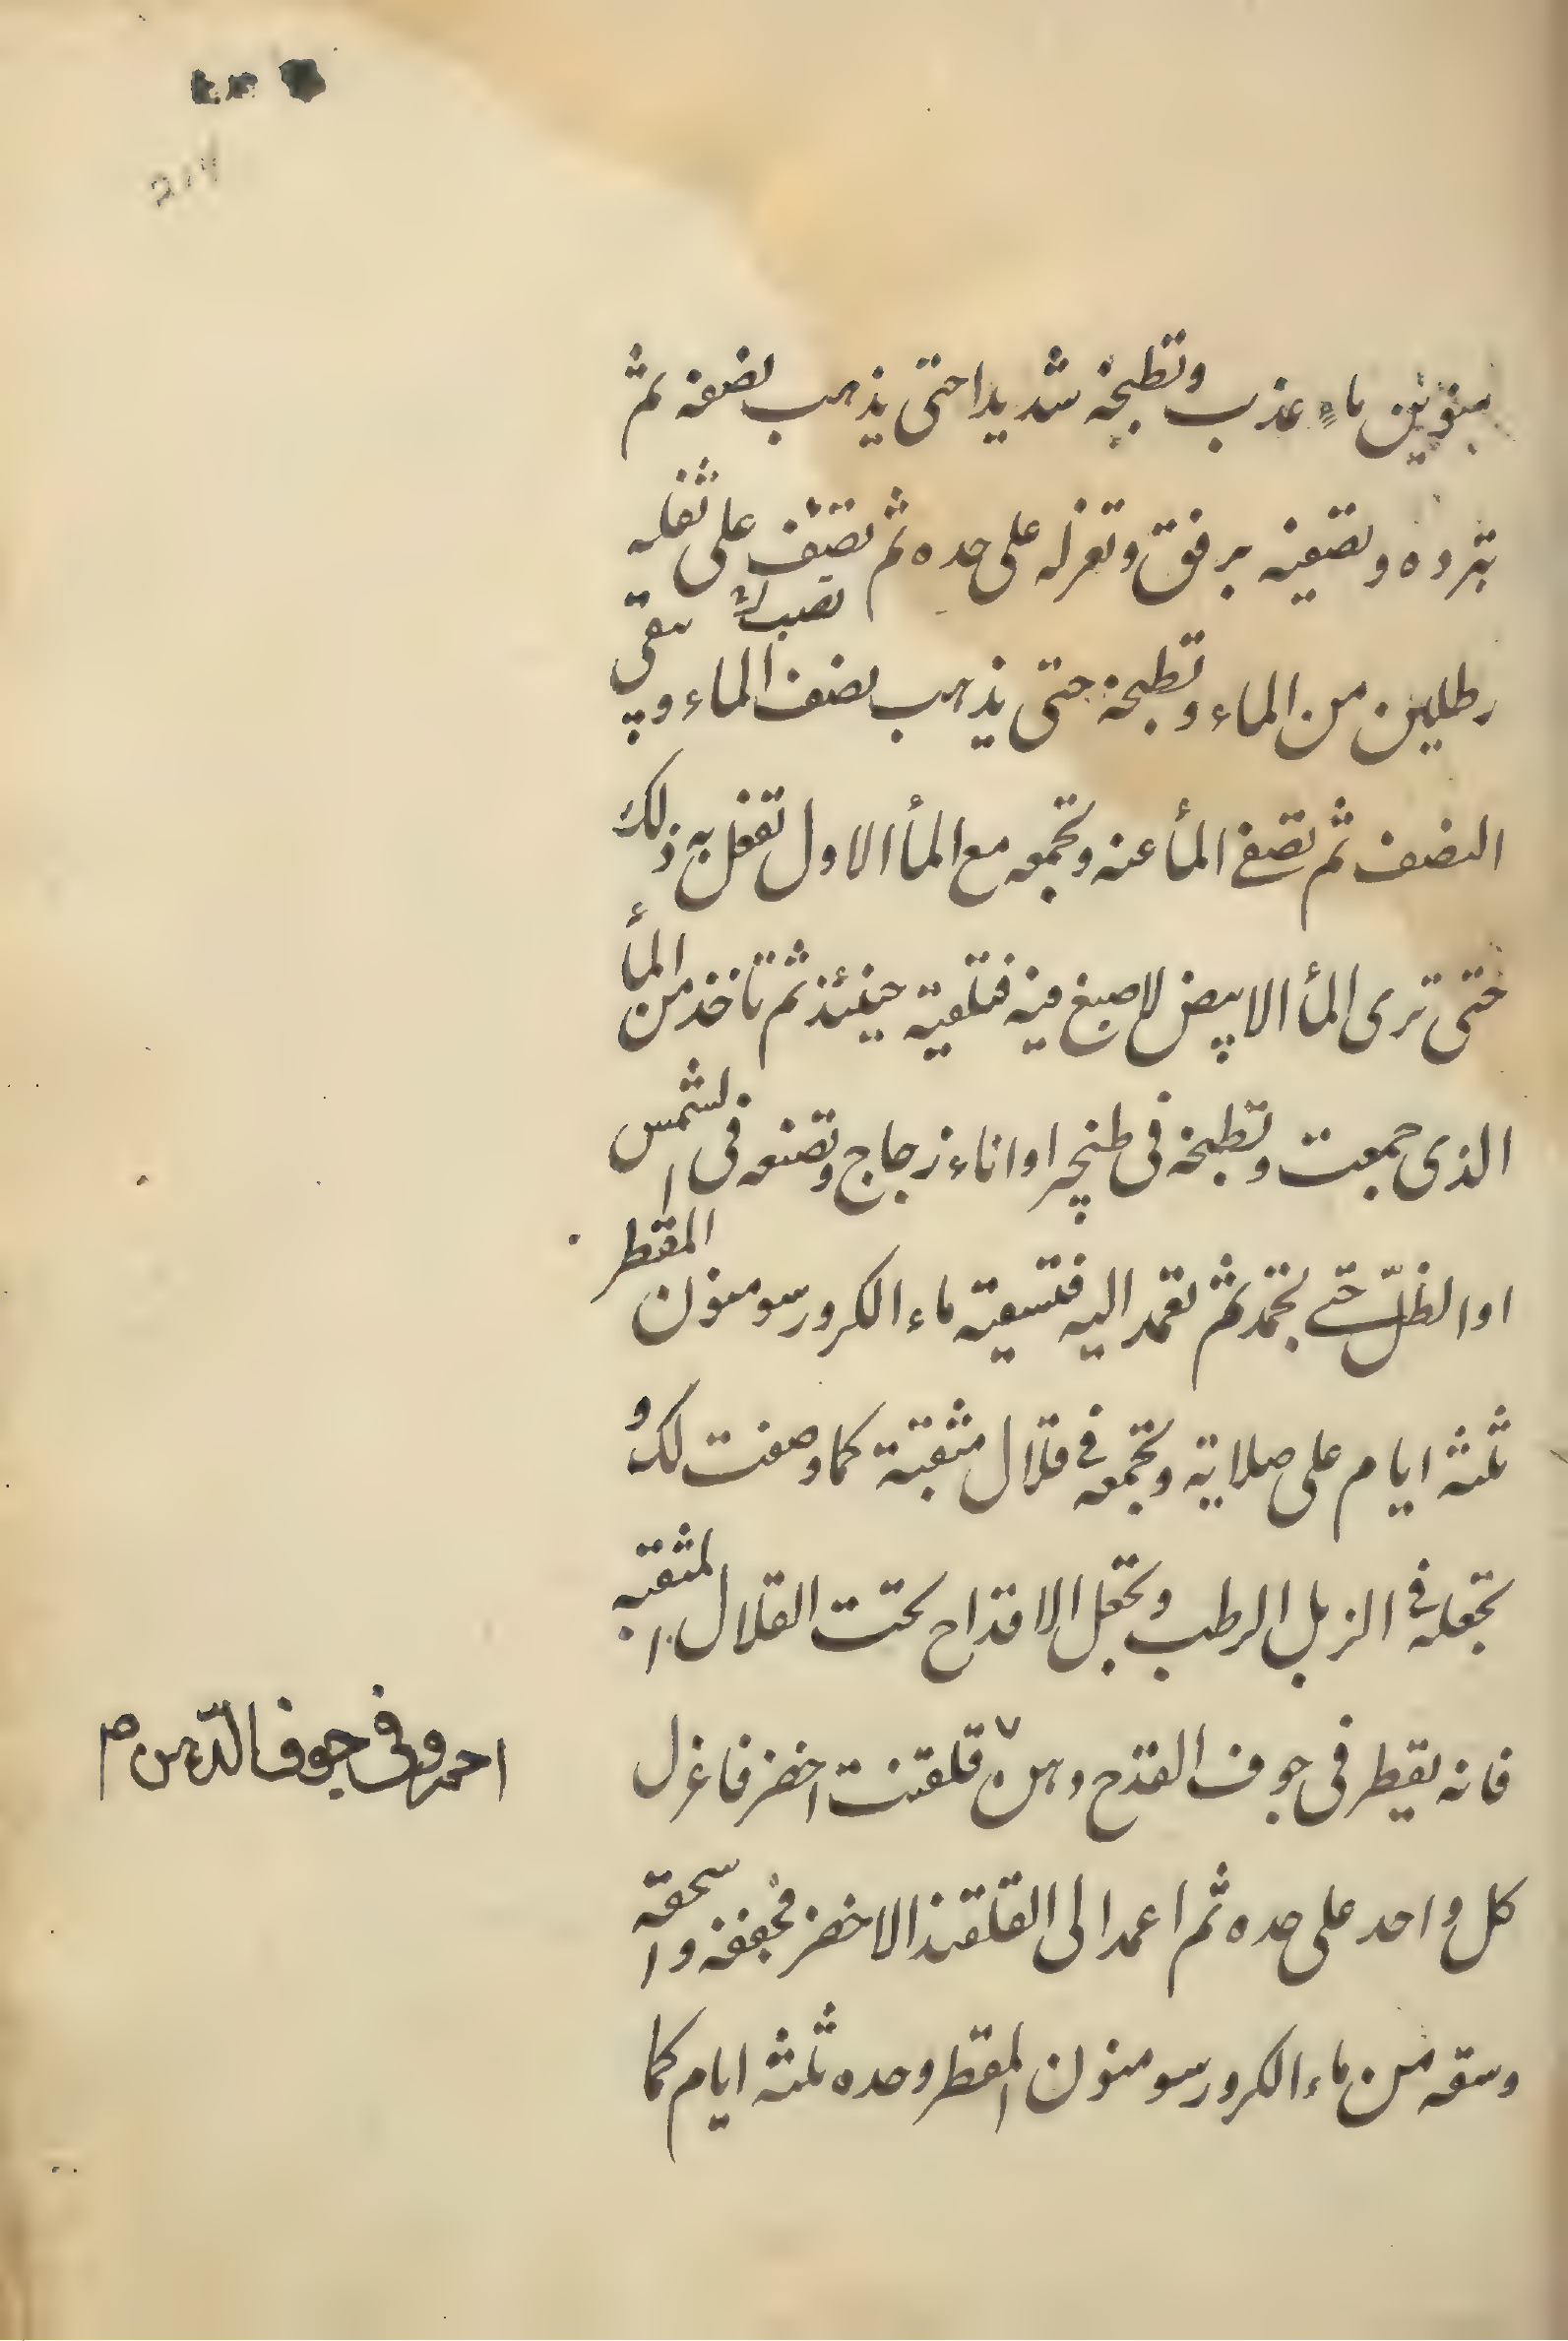 بنوين ماء عذب وتطبخه شديدا حتى يذهب نصفه ثم
تبرده وتصفيه برفق وتعزله على حده ثم تضيف على ثفله
تصب
رطلين من الماء وتطبخه حتى يذهب نصف الماء ويبقى
النصف ثم تصفي المأ عنه وتجمعه مع المأ الاول تفعل به ذلك
حتى ترى المأ الابيض لا صبغ فيه فتلقيه حينئذ ثم تاخذ من المأ
الذى جمعت وتطبخه فى طنجير او اناء زجاج وتضعه فى الشمس
او الظلّ حتى يجمد ثم تعمد اليه فتسقيه ماء الكرورسومنون المقطر
ثلثه ايام على صلاية وتجمعه في قلال مثقبة كما وصفت لك و
تجعله في الزبل الرطب وتجعل الاقداح تحت القلال المثقبه
فانه يقطر فى جوف القدح دهن ٧ قلقنت اخضر فاعزل
احمر وفى جوف الدّهن م
كل واحد على حده ثم اعمد الى القلقند الاخضر فجففه واسحقه
وسقه من ماء الكرورسومنون المقطر وحده ثلثه ايام كما